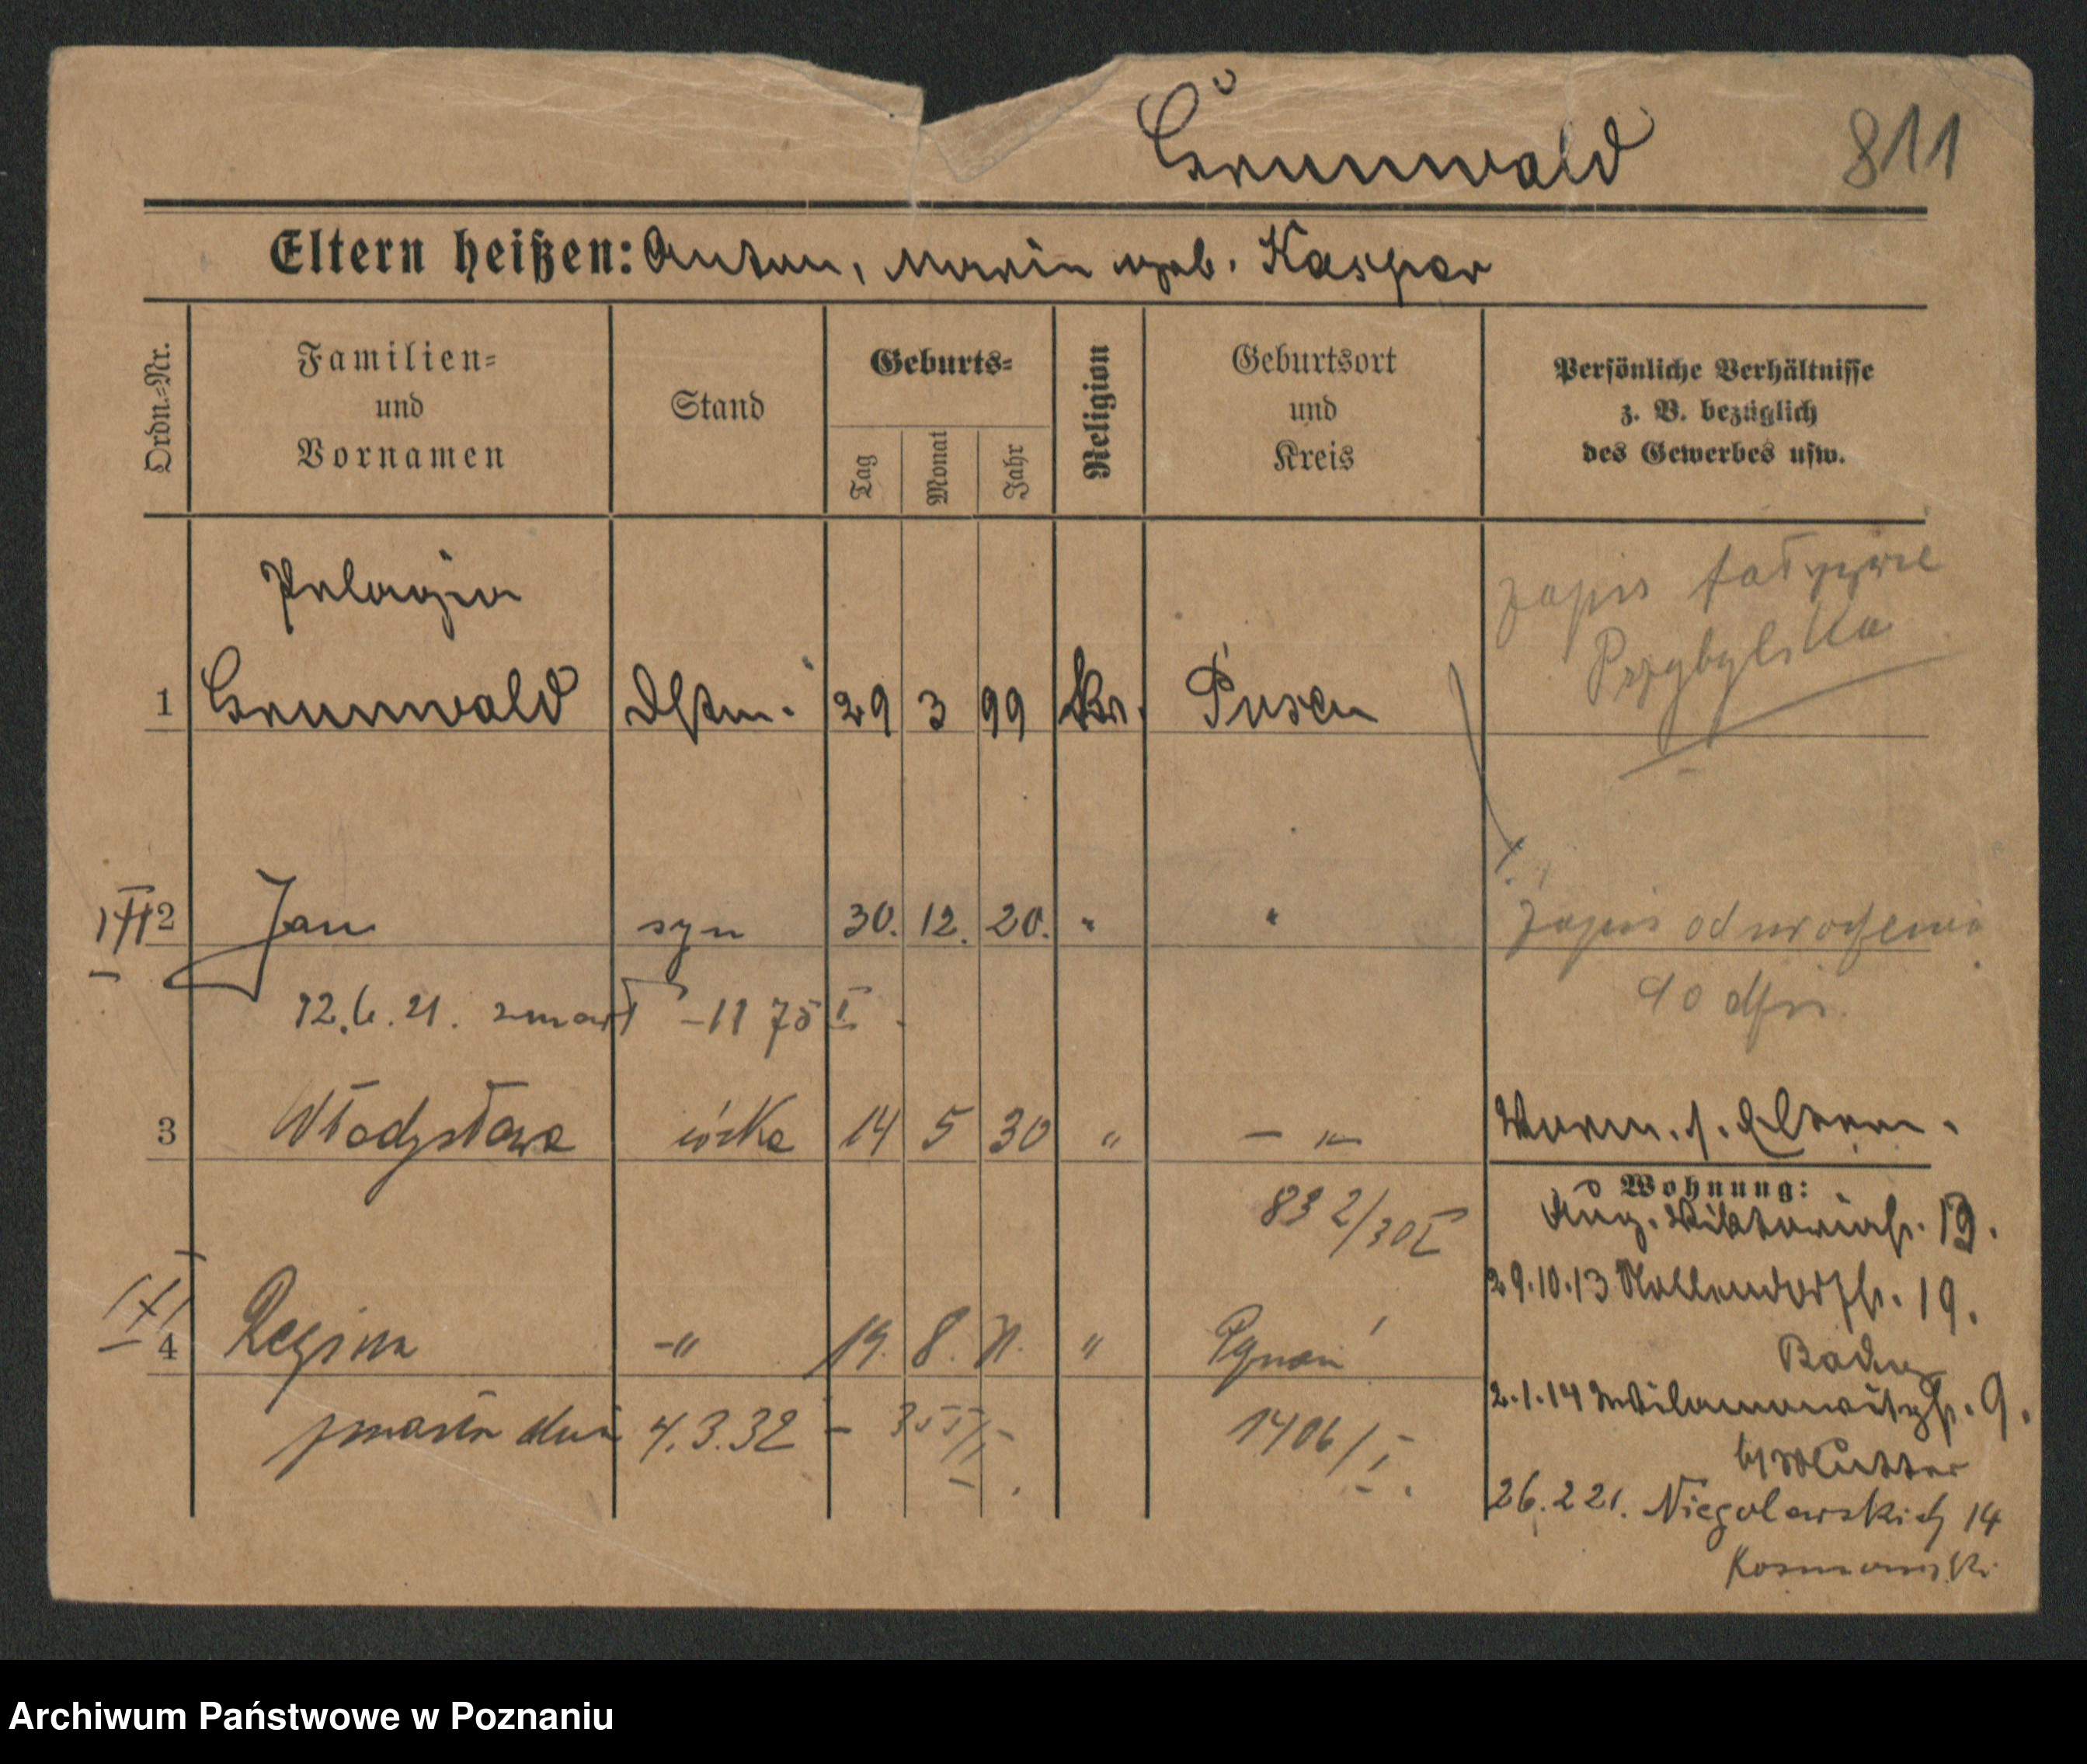 Grunwald 811
Eltern heißen: Anton, Marie geb. Kaspar
Ordn.-Nr.
Familien- und Vornamen
Stand
Geburts-
Tag
Monat
Jahr
Religion
Geburtsort und Kreis
Persönliche Verhältnisse z. B. bezüglich des Gewerbes usw.
Pelagia
1 Grunwald 29 3 99 Posen
zapis fałszywie
Przybylska
2 Jan syn 30. 12. 20. " "
zapis od urodzenia
12.6.21. zmarł – 1175 I.
3 Władysława córka 14 5 30 " – " –
Eltern.
Wohnung:
832/30 I
Aug. Viktoriastr. 19.
29.10.13 Nollendorfstr. 19.
4 Regina –" 19. 8. 31. " Poznań
2.1.14 Wilamowitzstr. 9.
zmarła dnia 4.3.32 – 355/I.
1406/I.
b/ Mutter
26.2 21. Niegolewskich 14
Kosmowski
Archiwum Państwowe w Poznaniu